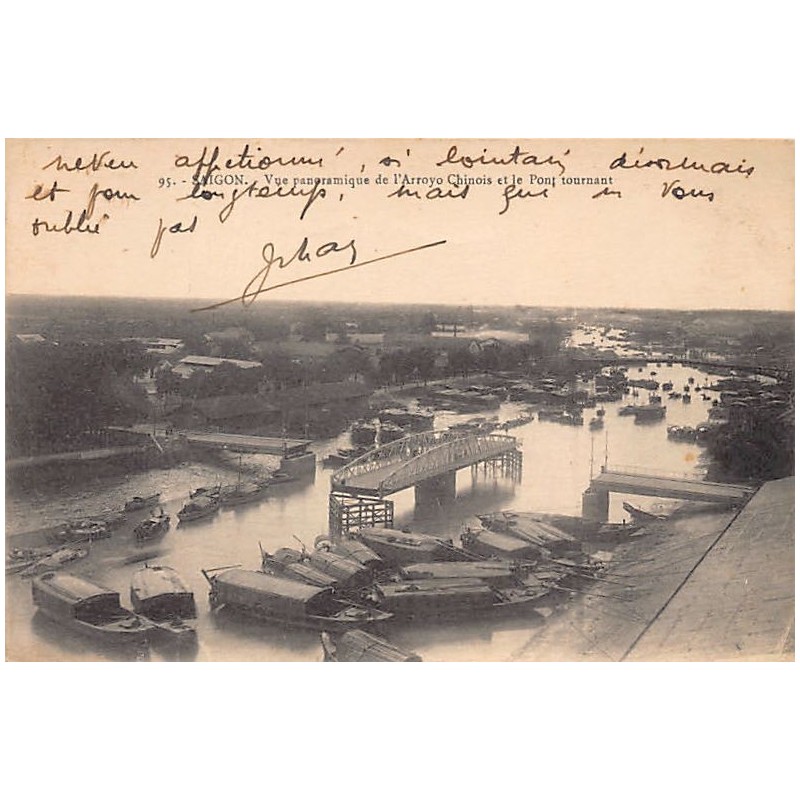 neveu affectionné, si lointain désormais
95. - SAIGON. - Vue panoramique de l'Arroyo Chinois et le Pont tournant
et pour longtemps, mais qui n Vous
oublie pas